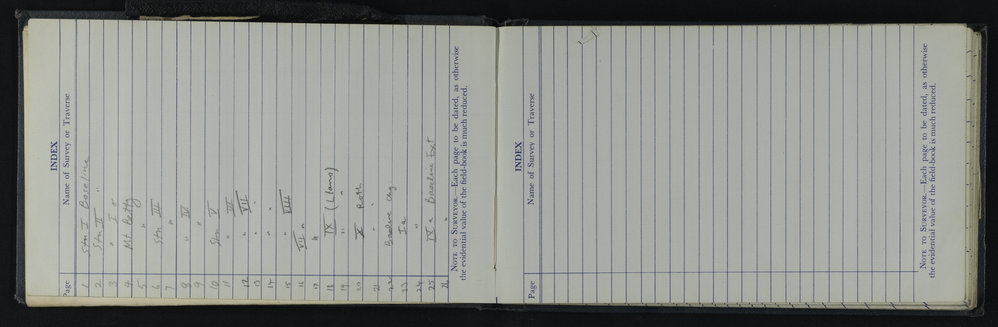 INDEX
Page Name of Survey or Traverse
1 Stn I Baseline
2 Stn II "
3 " I "
4 Mt Betty
5 "
6 Stn III
7 "
8 " IV
9 "
10 Stn V
11 " III
12 " VII
13 "
14 " "
15 " VIII
16 VII "
17 "
18 IX (Llano)
19 " "
20 X Roth
21 " "
22 Baseline
23 Ia
24 "
25 IX a Baseline Ext
26 "
NOTE TO SURVEYOR.—Each page to be dated, as otherwise
the evidential value of the field-book is much reduced.
INDEX
Page Name of Survey or Traverse
NOTE TO SURVEYOR.—Each page to be dated, as otherwise
the evidential value of the field-book is much reduced.